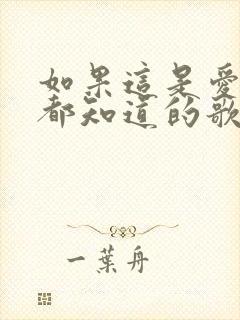 如果這是愛
都知道的歌
一葉舟